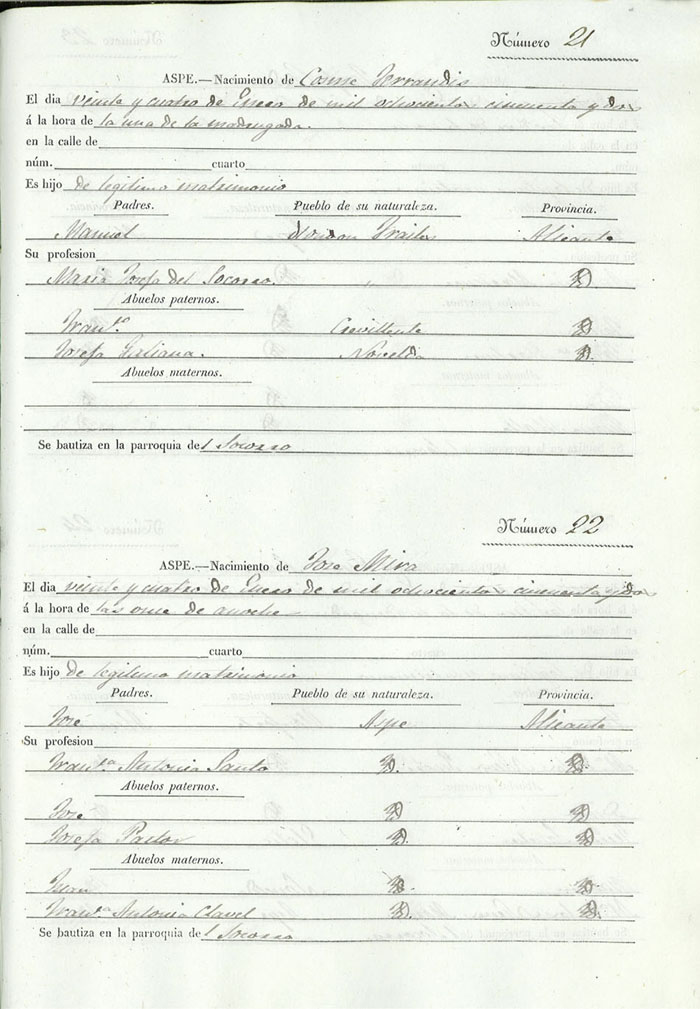 Número 21
ASPE.—Nacimiento de Cosme Ferrandis
El dia veinte y cuatro de Enero de mil ochocientos cincuenta y dos
á la hora de la una de la madrugada.
en la calle de
núm. cuarto
Es hijo de legitimo matrimonio
Padres. Pueblo de su naturaleza. Provincia.
Manuel Alicante
Su profesion
Maria Josefa del Socorro. D
Abuelos paternos.
Fran.co Crevillente D
Josefa Juliana. Novelda D
Abuelos maternos.
Se bautiza en la parroquia del Socorro
Número 22
ASPE.—Nacimiento de Jose Mira
El dia veinte y cuatro de Enero de mil ochocientos cincuenta y dos
á la hora de las once de anoche
en la calle de
núm. cuarto
Es hijo de legitimo matrimonio
Padres. Pueblo de su naturaleza. Provincia.
José Aspe Alicante
Su profesion
Fran.ca Antonia Santo D. D
Abuelos paternos.
Jose D D
Josefa Pastor D D
Abuelos maternos.
Juan D D
Fran.ca Antonia Clavel D. D.
Se bautiza en la parroquia del Socorro